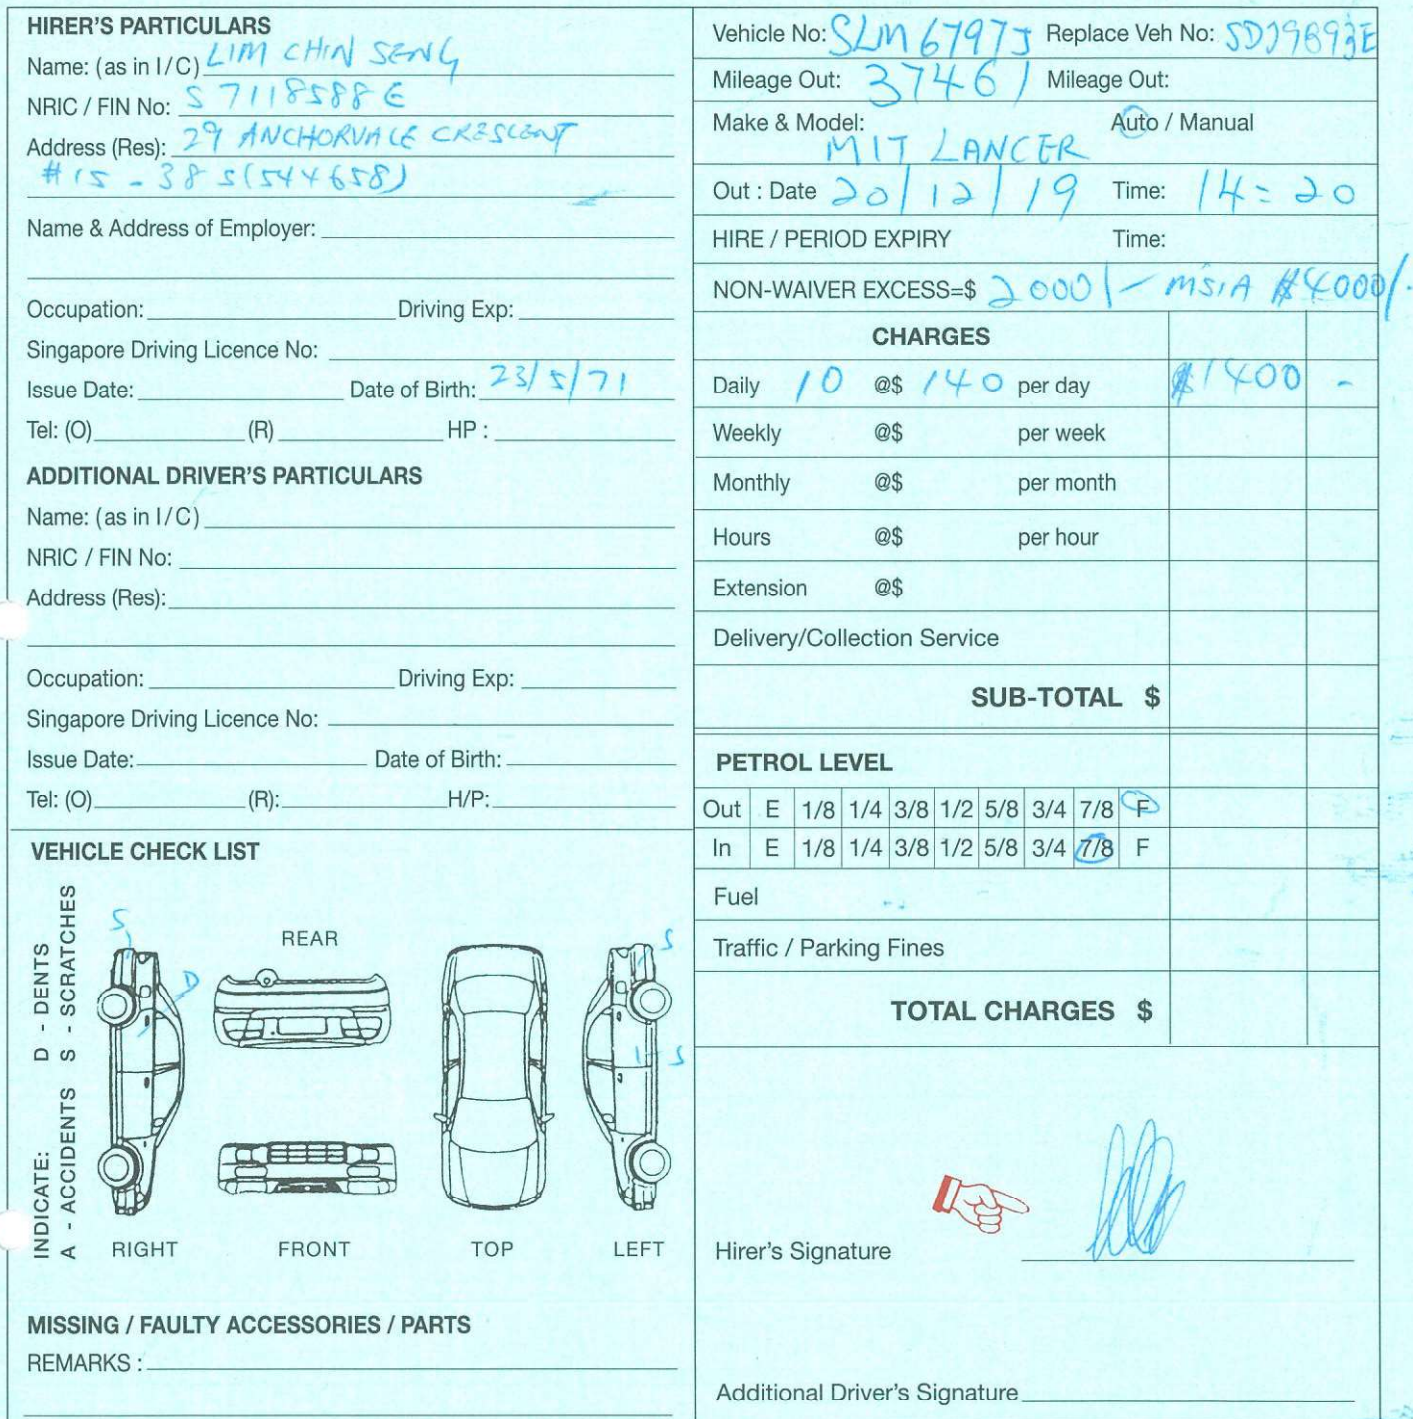 HIRER'S PARTICULARS
Name: (as in I/C) LIM CHIN SENG
NRIC / FIN No: S 7118588 E
Address (Res): 29 ANCHORVALE CRESCENT
#15 - 38 S(544658)
Name & Address of Employer:
Occupation: Driving Exp:
Singapore Driving Licence No:
Issue Date: Date of Birth: 23/5/71
Tel: (O) (R) HP :
ADDITIONAL DRIVER'S PARTICULARS
Name: (as in I/C)
NRIC / FIN No:
Address (Res):
Occupation: Driving Exp:
Singapore Driving Licence No:
Issue Date: Date of Birth:
Tel: (O) (R): H/P:
VEHICLE CHECK LIST
INDICATE: D - DENTS
A - ACCIDENTS S - SCRATCHES
S
D
REAR
S
S
RIGHT FRONT TOP LEFT
MISSING / FAULTY ACCESSORIES / PARTS
REMARKS :
Vehicle No: SLM 6797J Replace Veh No:
Mileage Out: 37461 Mileage Out:
Make & Model: Auto / Manual
MIT LANCER
Out : Date 20/12/19 Time: 14:20
HIRE / PERIOD EXPIRY Time:
NON-WAIVER EXCESS=$ 2000/- MSIA $4000/-
CHARGES
Daily 10 @$ 140 per day $1400 -
Weekly @$ per week
Monthly @$ per month
Hours @$ per hour
Extension @$
Delivery/Collection Service
SUB-TOTAL $
PETROL LEVEL
Out E 1/8 1/4 3/8 1/2 5/8 3/4 7/8 F
In E 1/8 1/4 3/8 1/2 5/8 3/4 7/8 F
Fuel
Traffic / Parking Fines
TOTAL CHARGES $
Hirer's Signature
Additional Driver's Signature